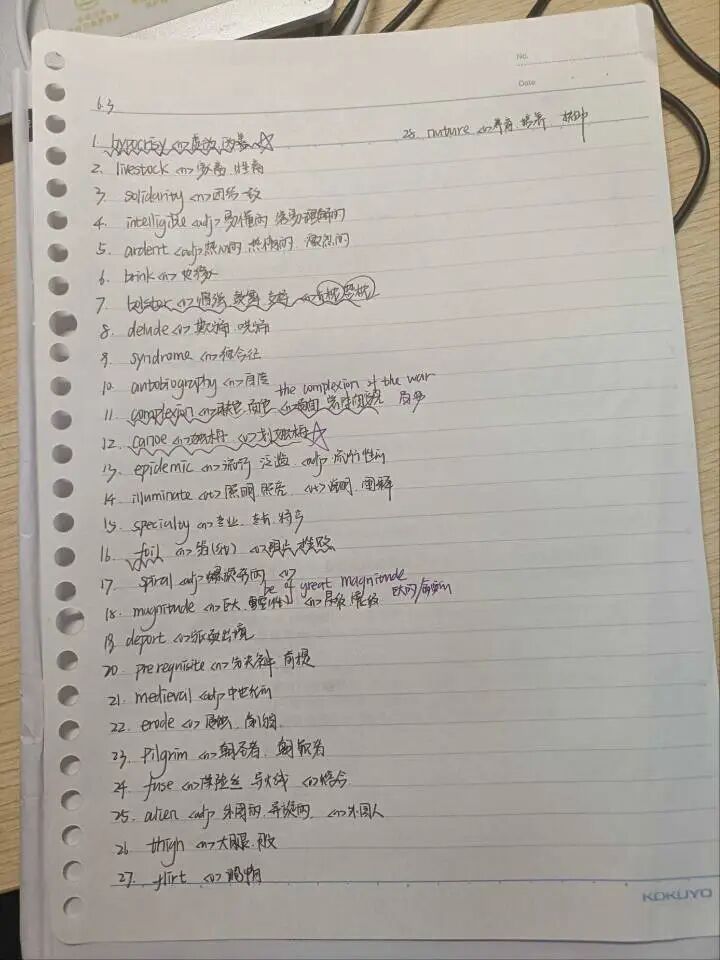 No.
Date
6.3
1. hypocrisy <n> 虚伪 伪善 ☆
28. nuture <v> 养育 培养
2. livestock <n> 家畜 牲畜
3. solidarity <n> 团结一致
4. intelligible <adj> 易懂的 容易理解的
5. ardent <adj> 热心的 热情的 激烈的
6. brink <n> 边缘
7. bolster <v> 增强 鼓舞 支持 <n> 长枕 垫枕
8. delude <v> 欺骗 哄骗
9. syndrome <n> 综合征
10. antobiography <n> 自传 the complexion of the war
11. complexion <n> 肤色 面色 <n> 局势
12. canoe <n> 独木舟 <v> 划独木舟 ☆
13. epidemic <n> 流行 泛滥 <adj> 流行性的
14. illuminate <vt> 照明 照亮 <vt> 说明 阐释
15. specialty <n> 专业 专长 特产
16. foil <n> 箔 <v> 阻止 挫败
17. spiral <adj> 螺旋形的 <v>
be of great magnitude
18. magnitude <n> 巨大 重要性 <n> 星级 震级
19. deport <v> 驱逐出境
20. prerequisite <n> 先决条件 前提
21. medieval <adj> 中世纪的
22. erode <v> 腐蚀 削弱
23. Pilgrim <n> 朝圣者 朝觐者
24. fuse <n> 保险丝 导火线 <v> 熔合
25. alien <adj> 外国的 异族的 <n> 外国人
26. thigh <n> 大腿 股
27. flirt <v> 调情
KOKUYO